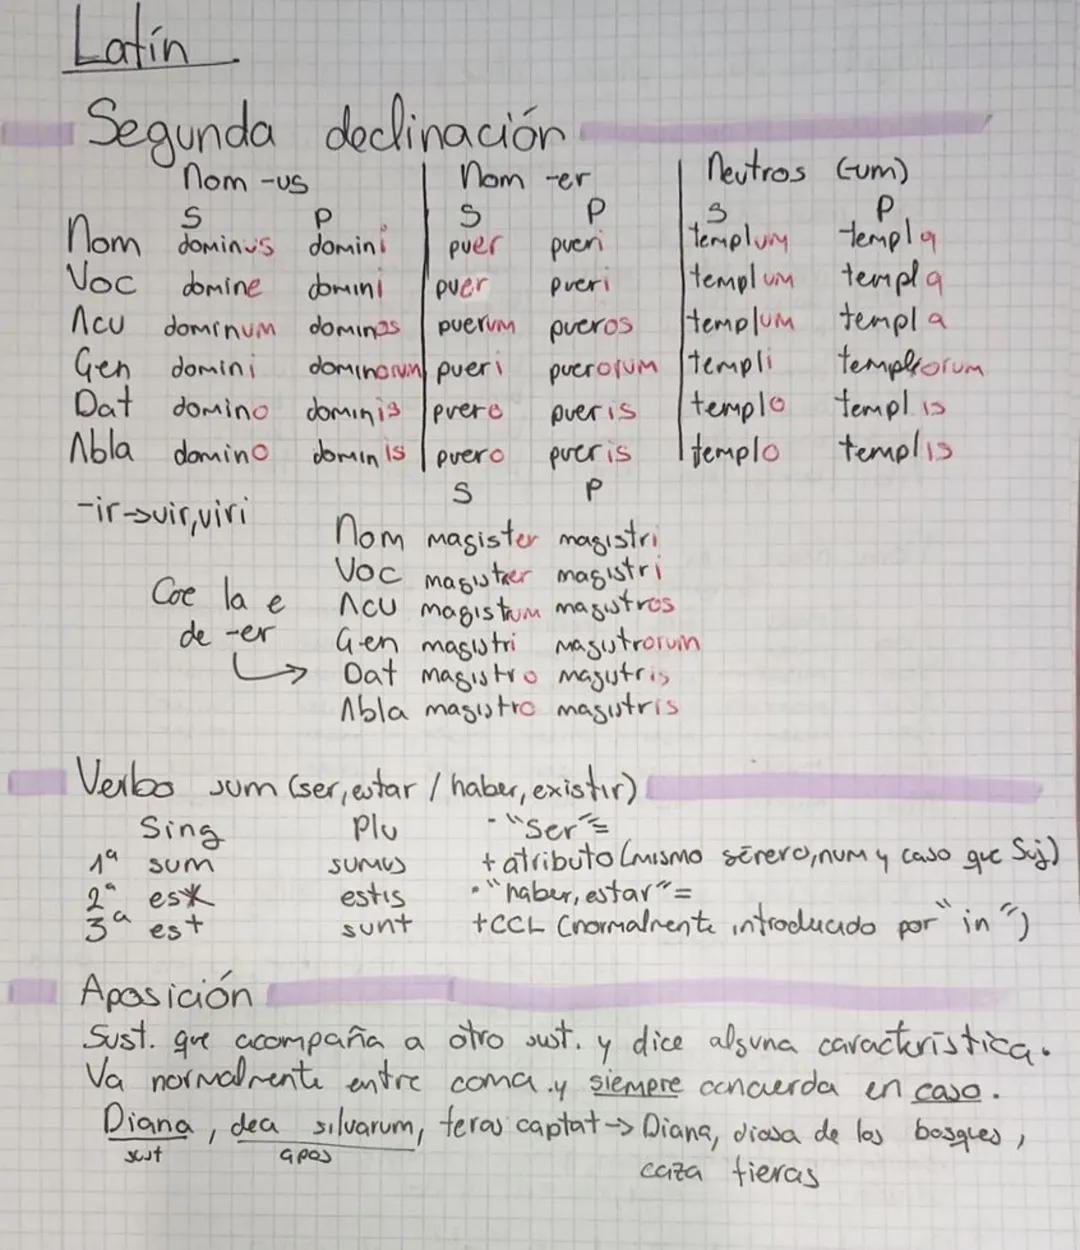 Latín
Segunda declinación
Nom -us Nom -er Neutros (-um)
S P S P S P
Nom dominus domini puer pueri templum templa
Voc domine domini puer pueri templum templa
Acu dominum dominos puerum pueros templum templa
Gen domini dominorum pueri puerorum templi templorum
Dat domino dominis puero pueris templo templis
Abla domino dominis puero pueris templo templis
S P
-ir→vir,viri
Nom magister magistri
Voc magister magistri
Cae la e
Acu magistrum magistros
de -er
Gen magistri magistrorum
Dat magistro magistris
Abla magistro magistris
Verbo sum (ser, estar / haber, existir)
Sing Plu - "Ser"=
1ª sum sumus + atributo (mismo género, num y caso que Suj)
2ª es estis • "haber, estar"=
3ª est sunt +CCL (normalmente introducido por "in")
Aposición
Sust. que acompaña a otro sust. y dice alguna característica.
Va normalmente entre coma. y siempre concuerda en caso.
Diana, dea silvarum, feras captat → Diana, diosa de los bosques,
sust apos
caza fieras